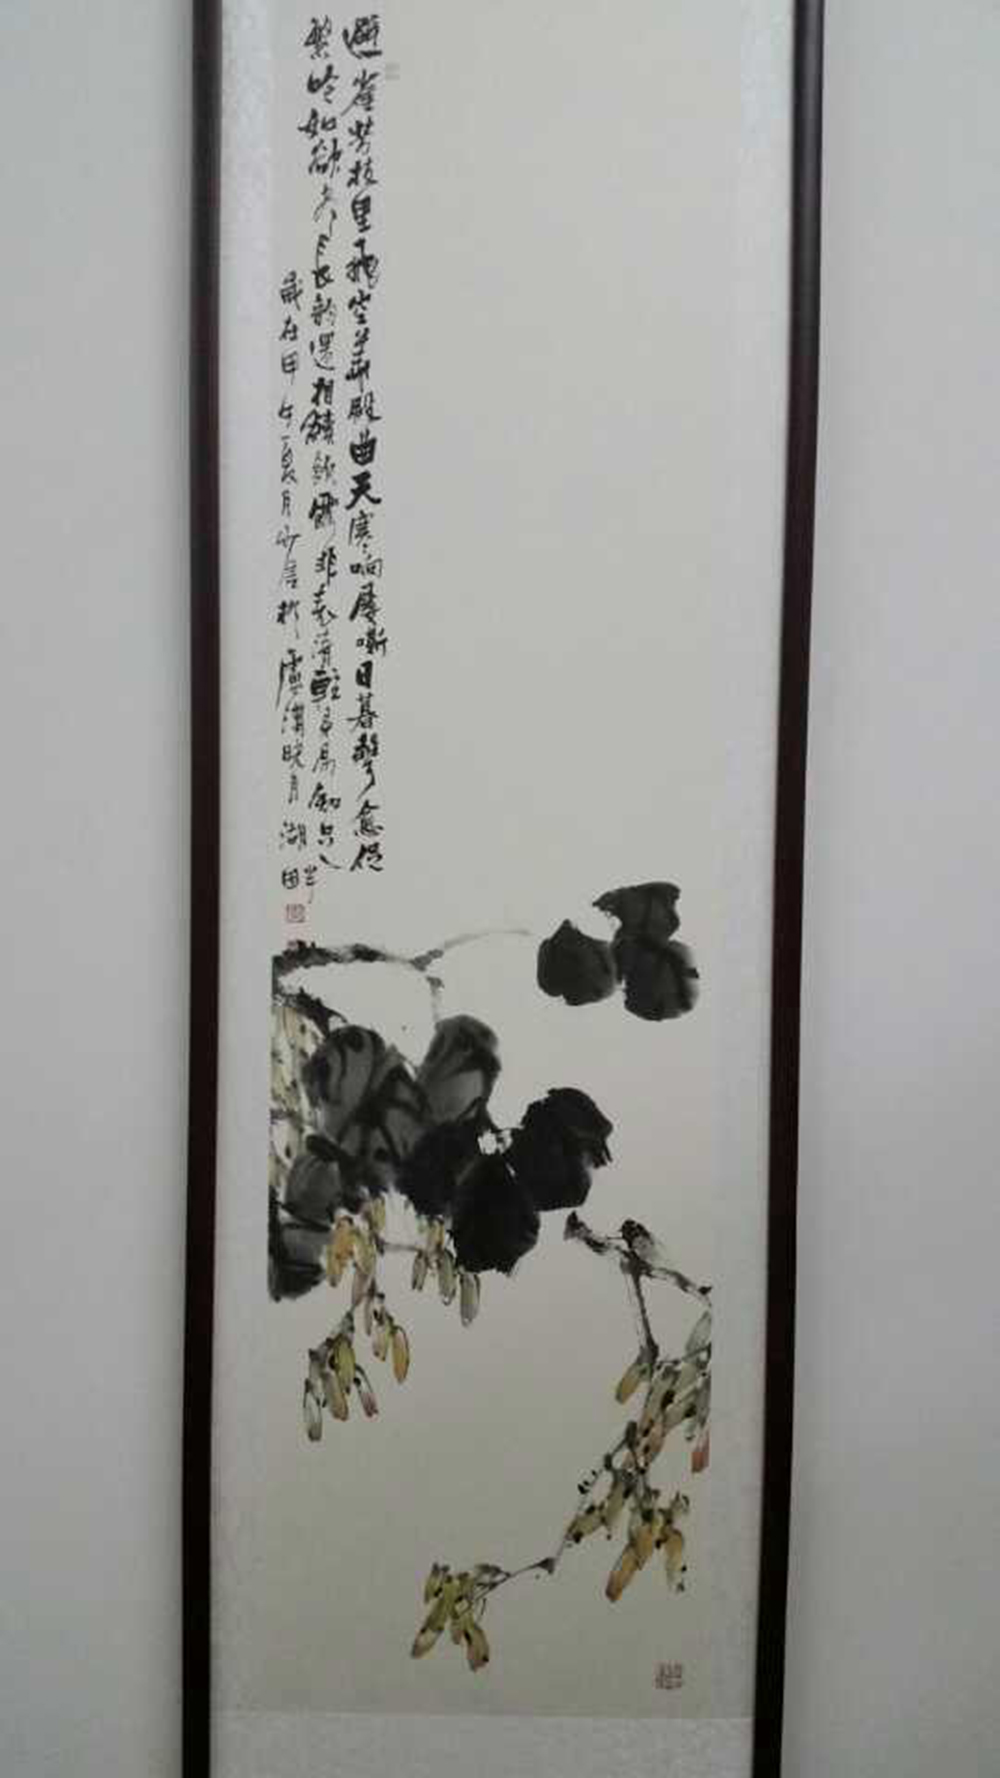 避雀芳枝里飛空華殿曲天寒响屡嘶日暮聲愈促
繁吟如欲尽長韵還相續飲露非表清輕身易知足
歲在甲午夏月於盧溝曉月湖田